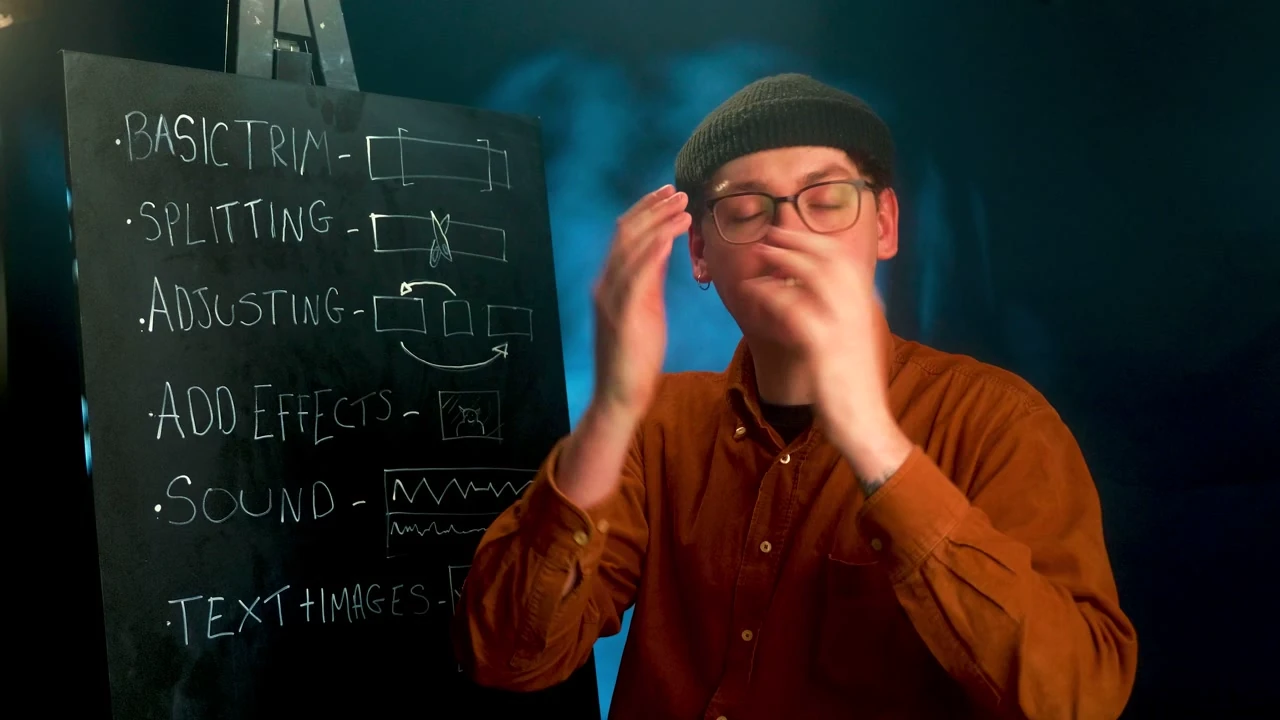 ·BASIC TRIM -
·SPLITTING -
·ADJUSTING -
·ADD EFFECTS -
·SOUND -
·TEXT + IMAGES -